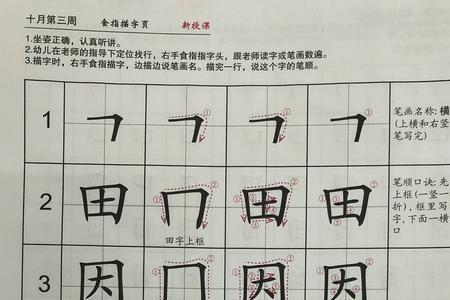 十月第三周 食指描字页 新授课
1.坐姿正确，认真听讲。
2.幼儿在老师的指导下定位找行，右手食指指字头，跟老师读字或笔画数遍。
3.描字时，右手食指描字，边描边说笔画名。描完一行，说这个字的笔顺。
1 𠃍 𠃍 𠃍 𠃍
笔画名称:横
(上横和右竖
笔写完)
2 田 冂 田 田
田字上框
笔顺口诀:先
上框(一竖一
折),框里写
字,下面一横
口
3 因 冂 因 因